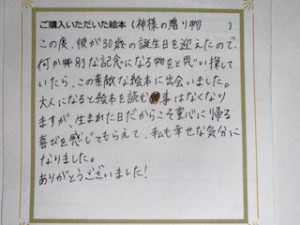 ご購入いただいた絵本（神様の贈り物　）
この度、彼が30歳の誕生日を迎えたので、
何か特別な記念になる物をと思い探して
いたら、この素敵な絵本に出会いました。
大人になると絵本を読む事はなくなり
ますが、生まれた日だからこそ童心に帰る
喜びを感じてもらえて、私も幸せな気分に
なりました。
ありがとうございました!